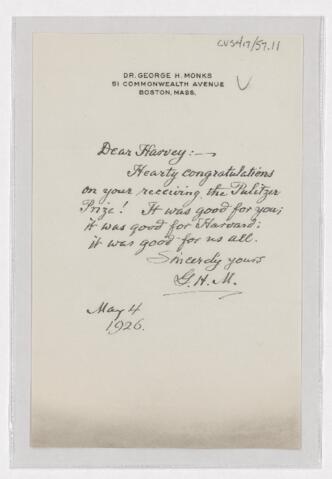 CUS417/57.11
DR. GEORGE H. MONKS
51 COMMONWEALTH AVENUE
BOSTON, MASS.
Dear Harvey:—
Hearty congratulations
on your receiving the Pulitzer
Prize! It was good for you;
it was good for Harvard;
it was good for us all.
Sincerely yours
G. H. M.
May 4
1926.